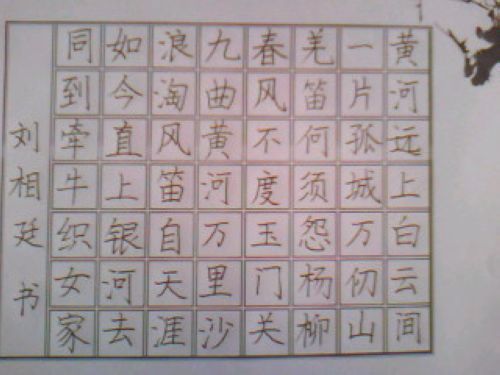 黄河远上白云间
一片孤城万仞山
羌笛何须怨杨柳
春风不度玉门关
九曲黄河万里沙
浪淘风笛自天涯
如今直上银河去
同到牵牛织女家
刘相廷 书